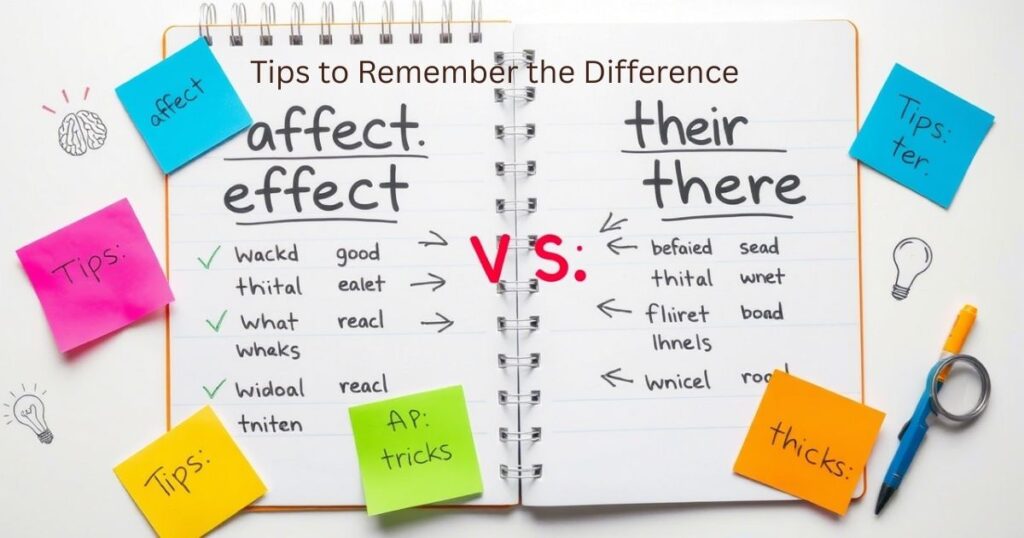 Tips to Remember the Difference
affect
affect.
effect
Tips:
wackd good
thiital ealet
what reacl
whaks
widoal reacl
tniten
Tips:
AP:
tricks
VS:
their
there
Tips:
ter.
befaied sead
thital wnet
fliret boad
lhnels
wnicel
thicks: